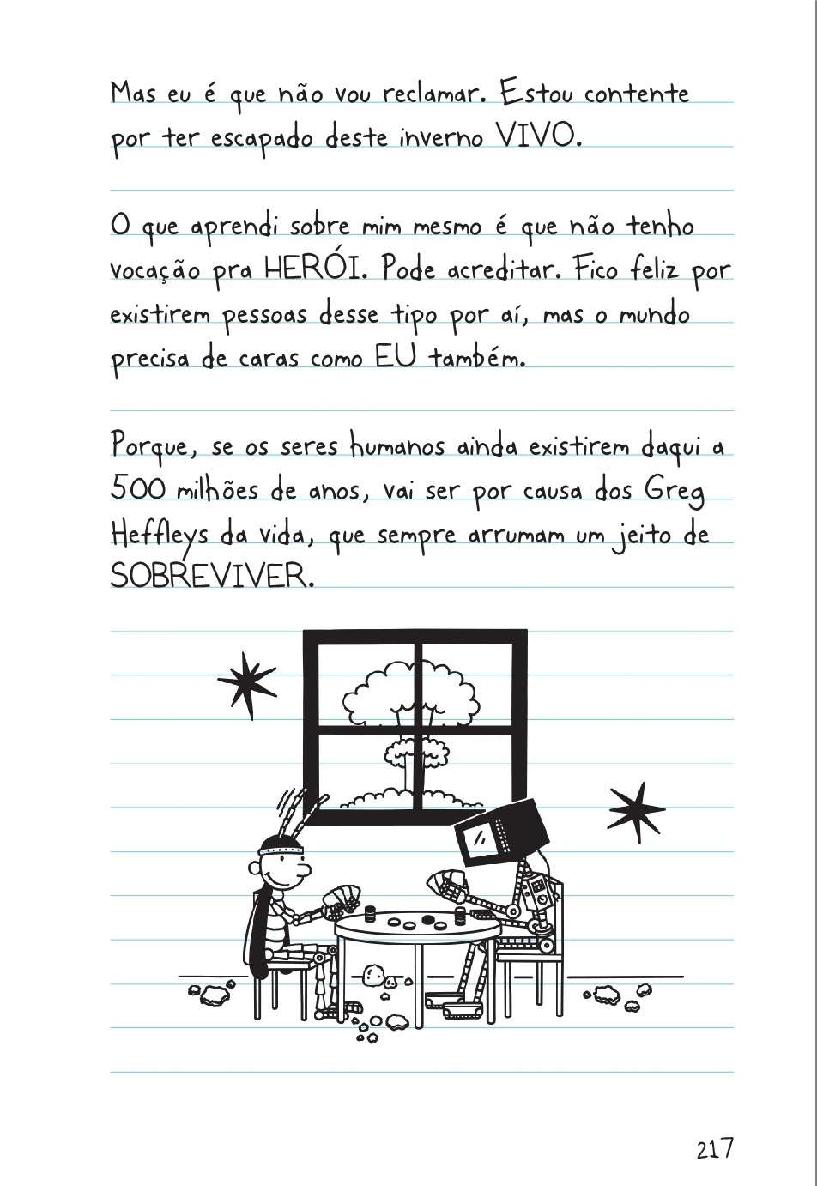 Mas eu é que não vou reclamar. Estou contente
por ter escapado deste inverno VIVO.
O que aprendi sobre mim mesmo é que não tenho
vocação pra HERÓI. Pode acreditar. Fico feliz por
existirem pessoas desse tipo por aí, mas o mundo
precisa de caras como EU também.
Porque, se os seres humanos ainda existirem daqui a
500 milhões de anos, vai ser por causa dos Greg
Heffleys da vida, que sempre arrumam um jeito de
SOBREVIVER.
217